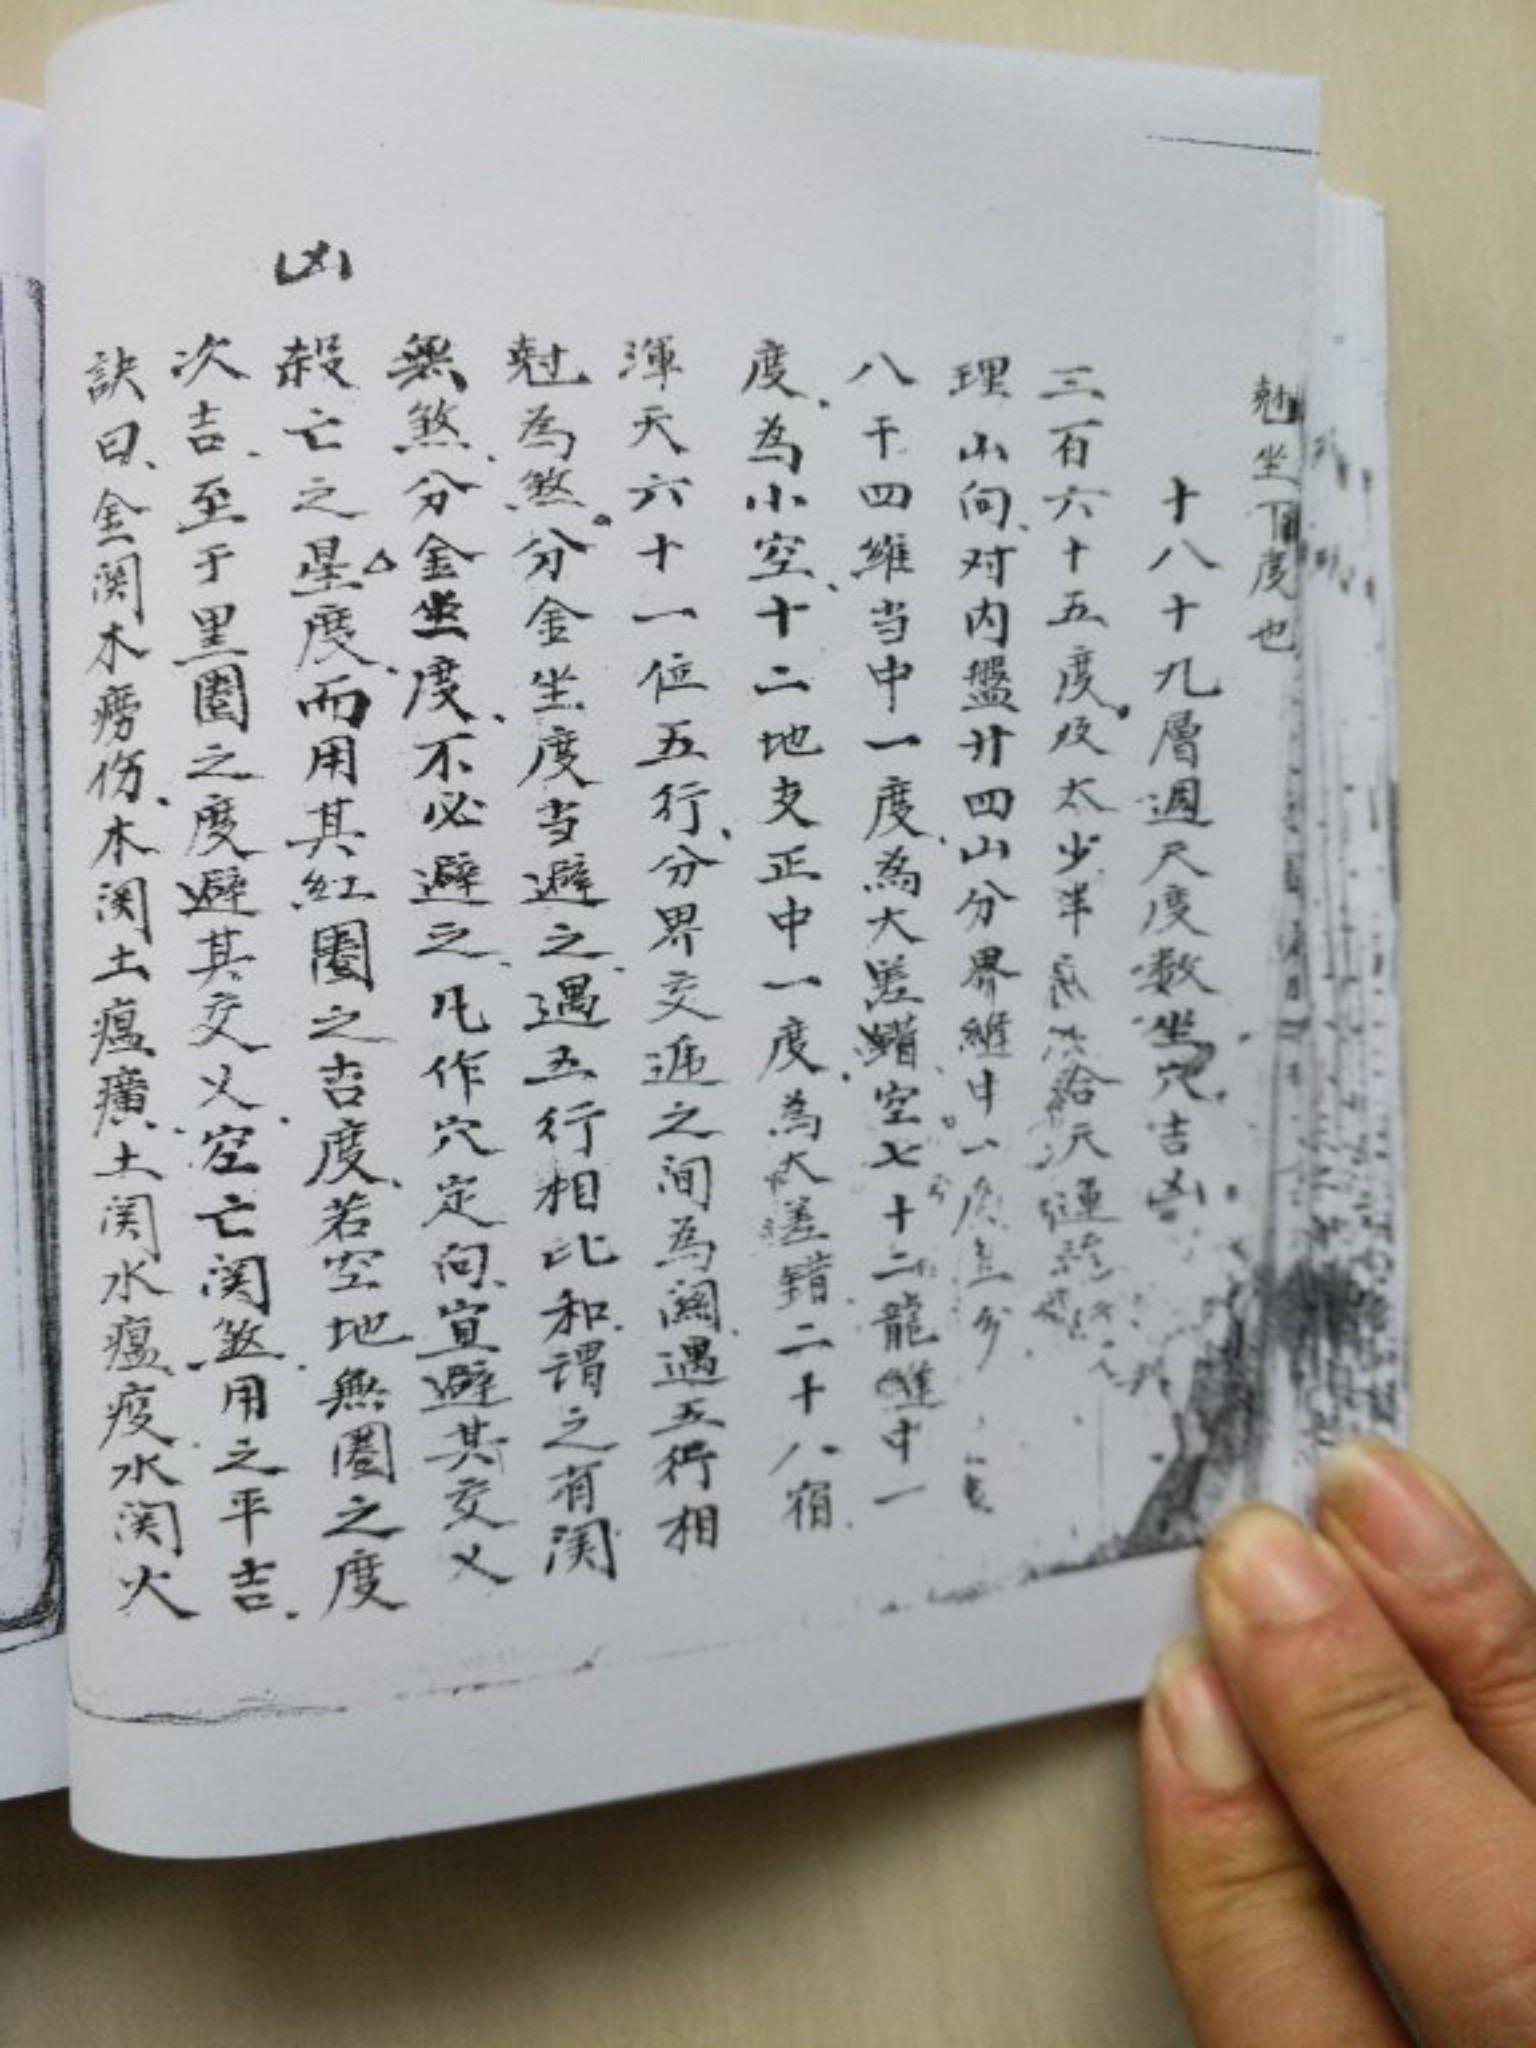 尅坐下度也
十八十九層週天度数坐穴吉凶
三百六十五度及太少半
理山向対内盤廿四山分界縫中一
八干四維当中一度為大差錯空七十二龍縫中一
度為小空十二地支正中一度為大差錯二十八宿
渾天六十一位五行分界交逓之间為関遇五行相
尅為煞分金坐度当避之遇五行相比和谓之有関
無煞分金坐度不必避之凡作穴定向宜避其交乂
殺亡之星度而用其紅圈之吉度若空地無圈之度
凶
次吉至于里圈之度避其交乂空亡関煞用之平吉
訣曰金関木痨伤木関土瘟㾱土関水瘟疫水関火